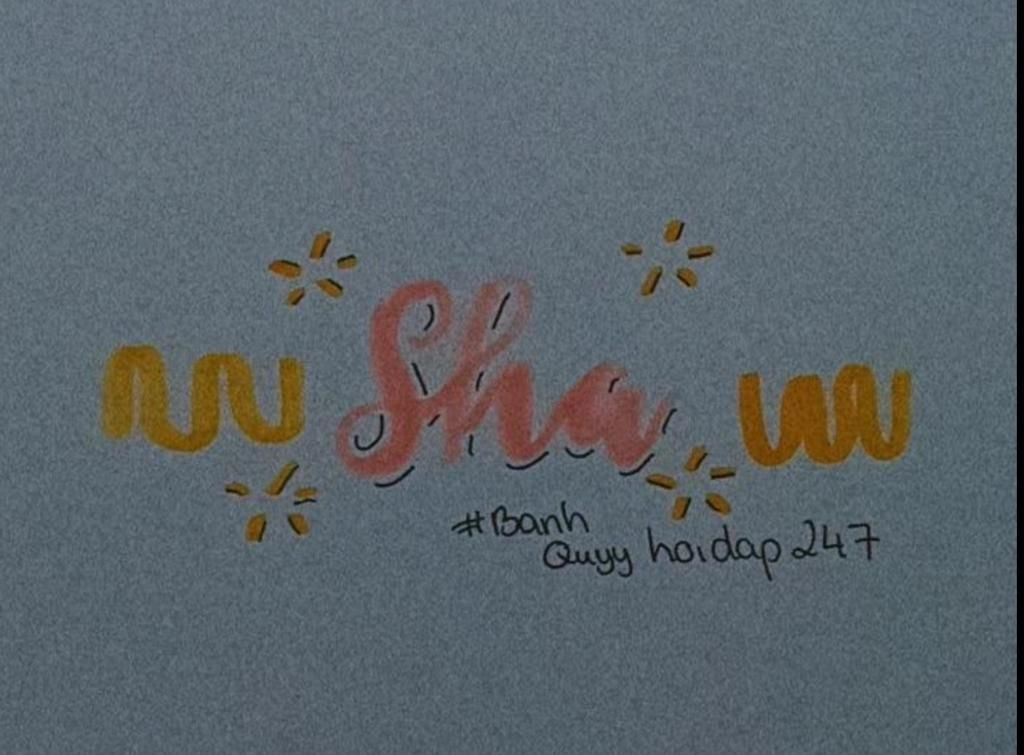 Sha
#Banh
Quyy hoidap 247